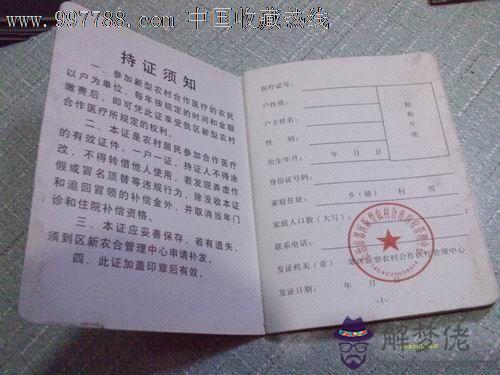 www.997788.com 中国收藏热线
持证须知
一、参加新型农村合作医疗的农民
以户为单位，每年按规定的时间和金额
缴费后，即可凭此证享受我区新型农村
合作医疗所规定的权利。
二、本证是农村居民参加合作医疗
的有效证件，一户一证，持证人不得涂
改，不得转借他人使用，若发现弄虚作
假或冒名顶替等违规行为，除没收本证
和追回冒领的补偿金外，并取消当年门
诊和住院补偿资格。
三、本证应妥善保存，若有遗失、
须到区新农合管理中心申请补发。
四、此证加盖印章后有效。
医疗证号：
户性质：
户主姓名：
性 别：
出生年月： 年 月
身份证号码：
家庭住址： 乡(镇) 村 组
家庭人口数（大写）：
联系电话：
发证机关（章） 区新型农村合作医疗管理中心
发证日期： 年 月 日
贴相片处
-1-
解梦佬